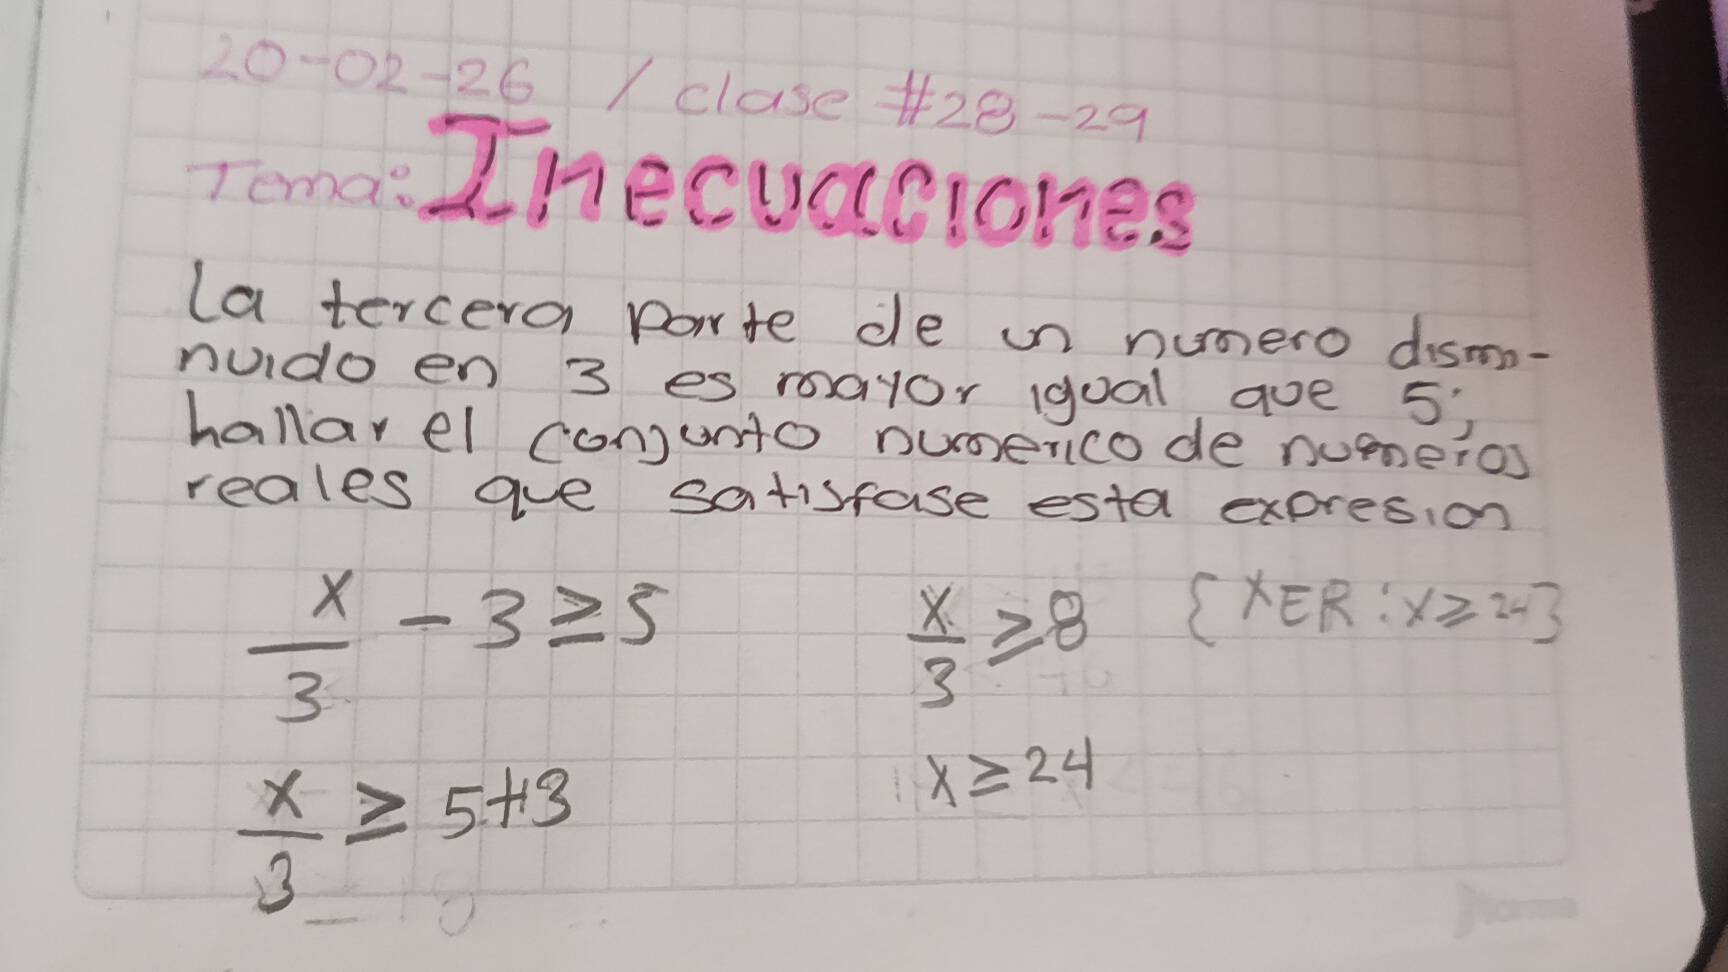 20-02-26 / clase #28-29
Tema: Inecuaciones
la tercera parte de un numero dismi-
nuido en 3 es mayor igual que 5;
hallar el conjunto numerico de numeros
reales que satisfase esta expresion
x/3 - 3 ≥ 5
x/3 ≥ 8
{XER: X ≥ 24}
x/3 ≥ 5+3
x ≥ 24
Norma